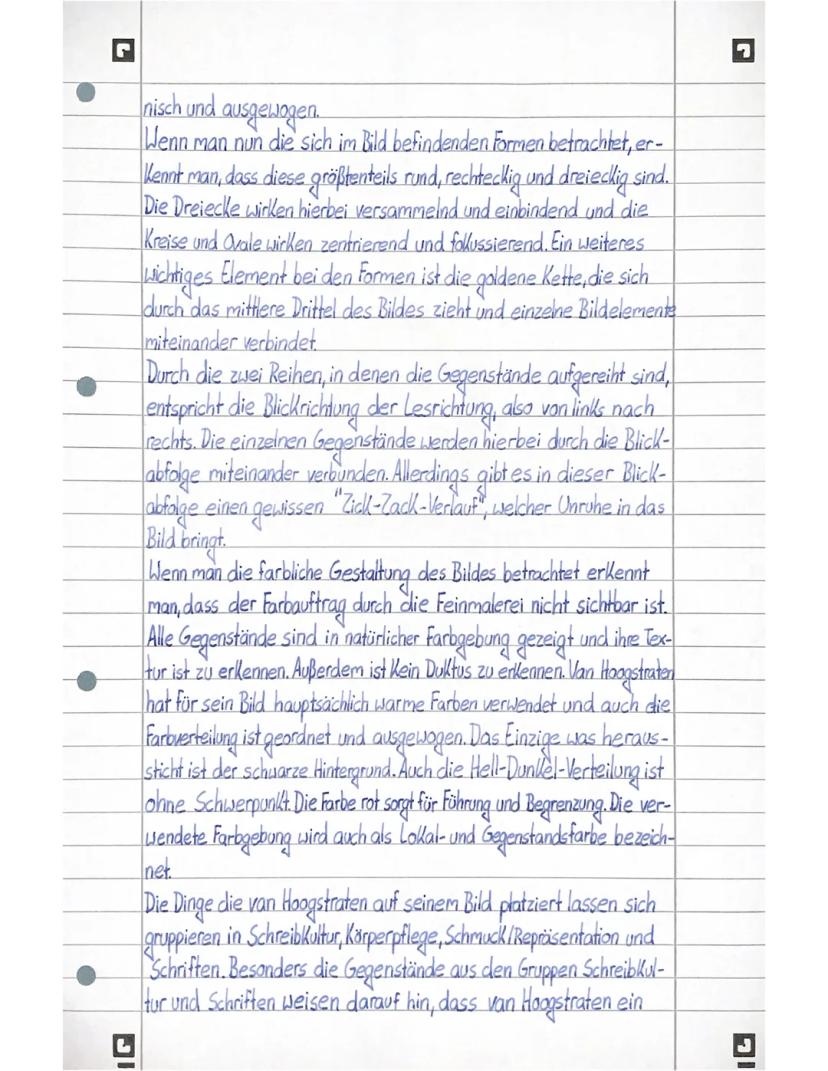 nisch und ausgewogen.
Wenn man nun die sich im Bild befindenden Formen betrachtet, er-
kennt man, dass diese größtenteils rund, rechteckig und dreieckig sind.
Die Dreiecke wirken hierbei versammelnd und einbindend und die
Kreise und Ovale wirken zentrierend und fokussierend. Ein weiteres
wichtiges Element bei den Formen ist die goldene Kette, die sich
durch das mittlere Drittel des Bildes zieht und einzelne Bildelemente
miteinander verbindet.
Durch die zwei Reihen, in denen die Gegenstände aufgereiht sind,
entspricht die Blickrichtung der Lesrichtung, also von links nach
rechts. Die einzelnen Gegenstände werden hierbei durch die Blick-
abfolge miteinander verbunden. Allerdings gibt es in dieser Blick-
abfolge einen gewissen "Zick-Zack-Verlauf", welcher Unruhe in das
Bild bringt.
Wenn man die farbliche Gestaltung des Bildes betrachtet erkennt
man, dass der Farbauftrag durch die Feinmalerei nicht sichtbar ist.
Alle Gegenstände sind in natürlicher Farbgebung gezeigt und ihre Tex-
tur ist zu erkennen. Außerdem ist kein Duktus zu erkennen. Van Hoogstraten
hat für sein Bild hauptsächlich warme Farben verwendet und auch die
Farbverteilung ist geordnet und ausgewogen. Das Einzige was heraus-
sticht ist der schwarze Hintergrund. Auch die Hell-Dunkel-Verteilung ist
ohne Schwerpunkt. Die Farbe rot sorgt für Führung und Begrenzung. Die ver-
wendete Farbgebung wird auch als Lokal- und Gegenstandsfarbe bezeich-
net.
Die Dinge die van Hoogstraten auf seinem Bild platziert lassen sich
gruppieren in Schreibkultur, Körperpflege, Schmuck/Repräsentation und
Schriften. Besonders die Gegenstände aus den Gruppen Schreibkul-
tur und Schriften weisen darauf hin, dass van Hoogstraten ein